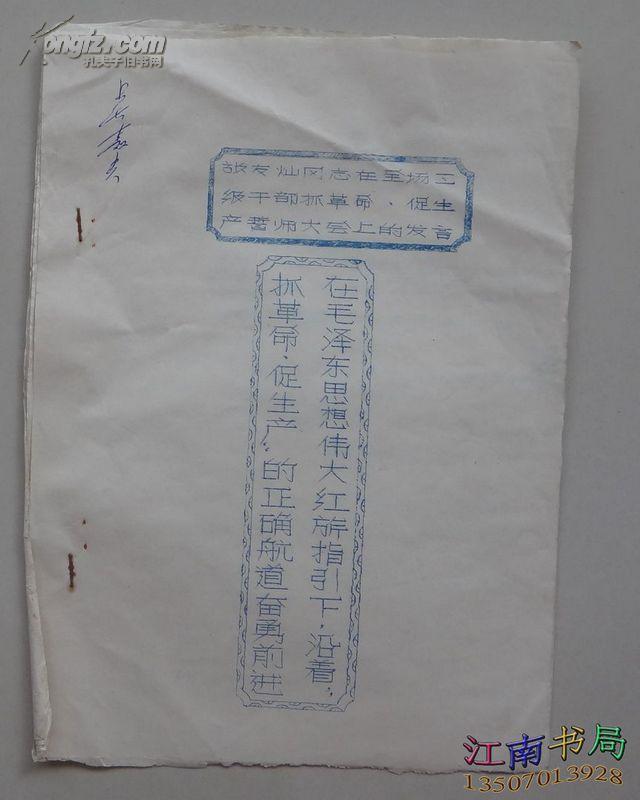 Kongfz.com
孔夫子旧书网
张友灿同志在全场三
级干部抓革命、促生
产誓师大会上的发言
在毛泽东思想伟大红旗指引下，沿着“
抓革命、促生产”的正确航道奋勇前进
江南书局
13507013928